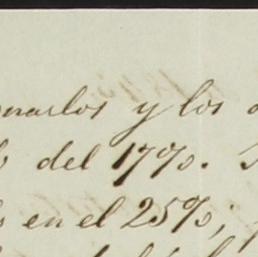 narlos y los
del 17%.
en el 25%;